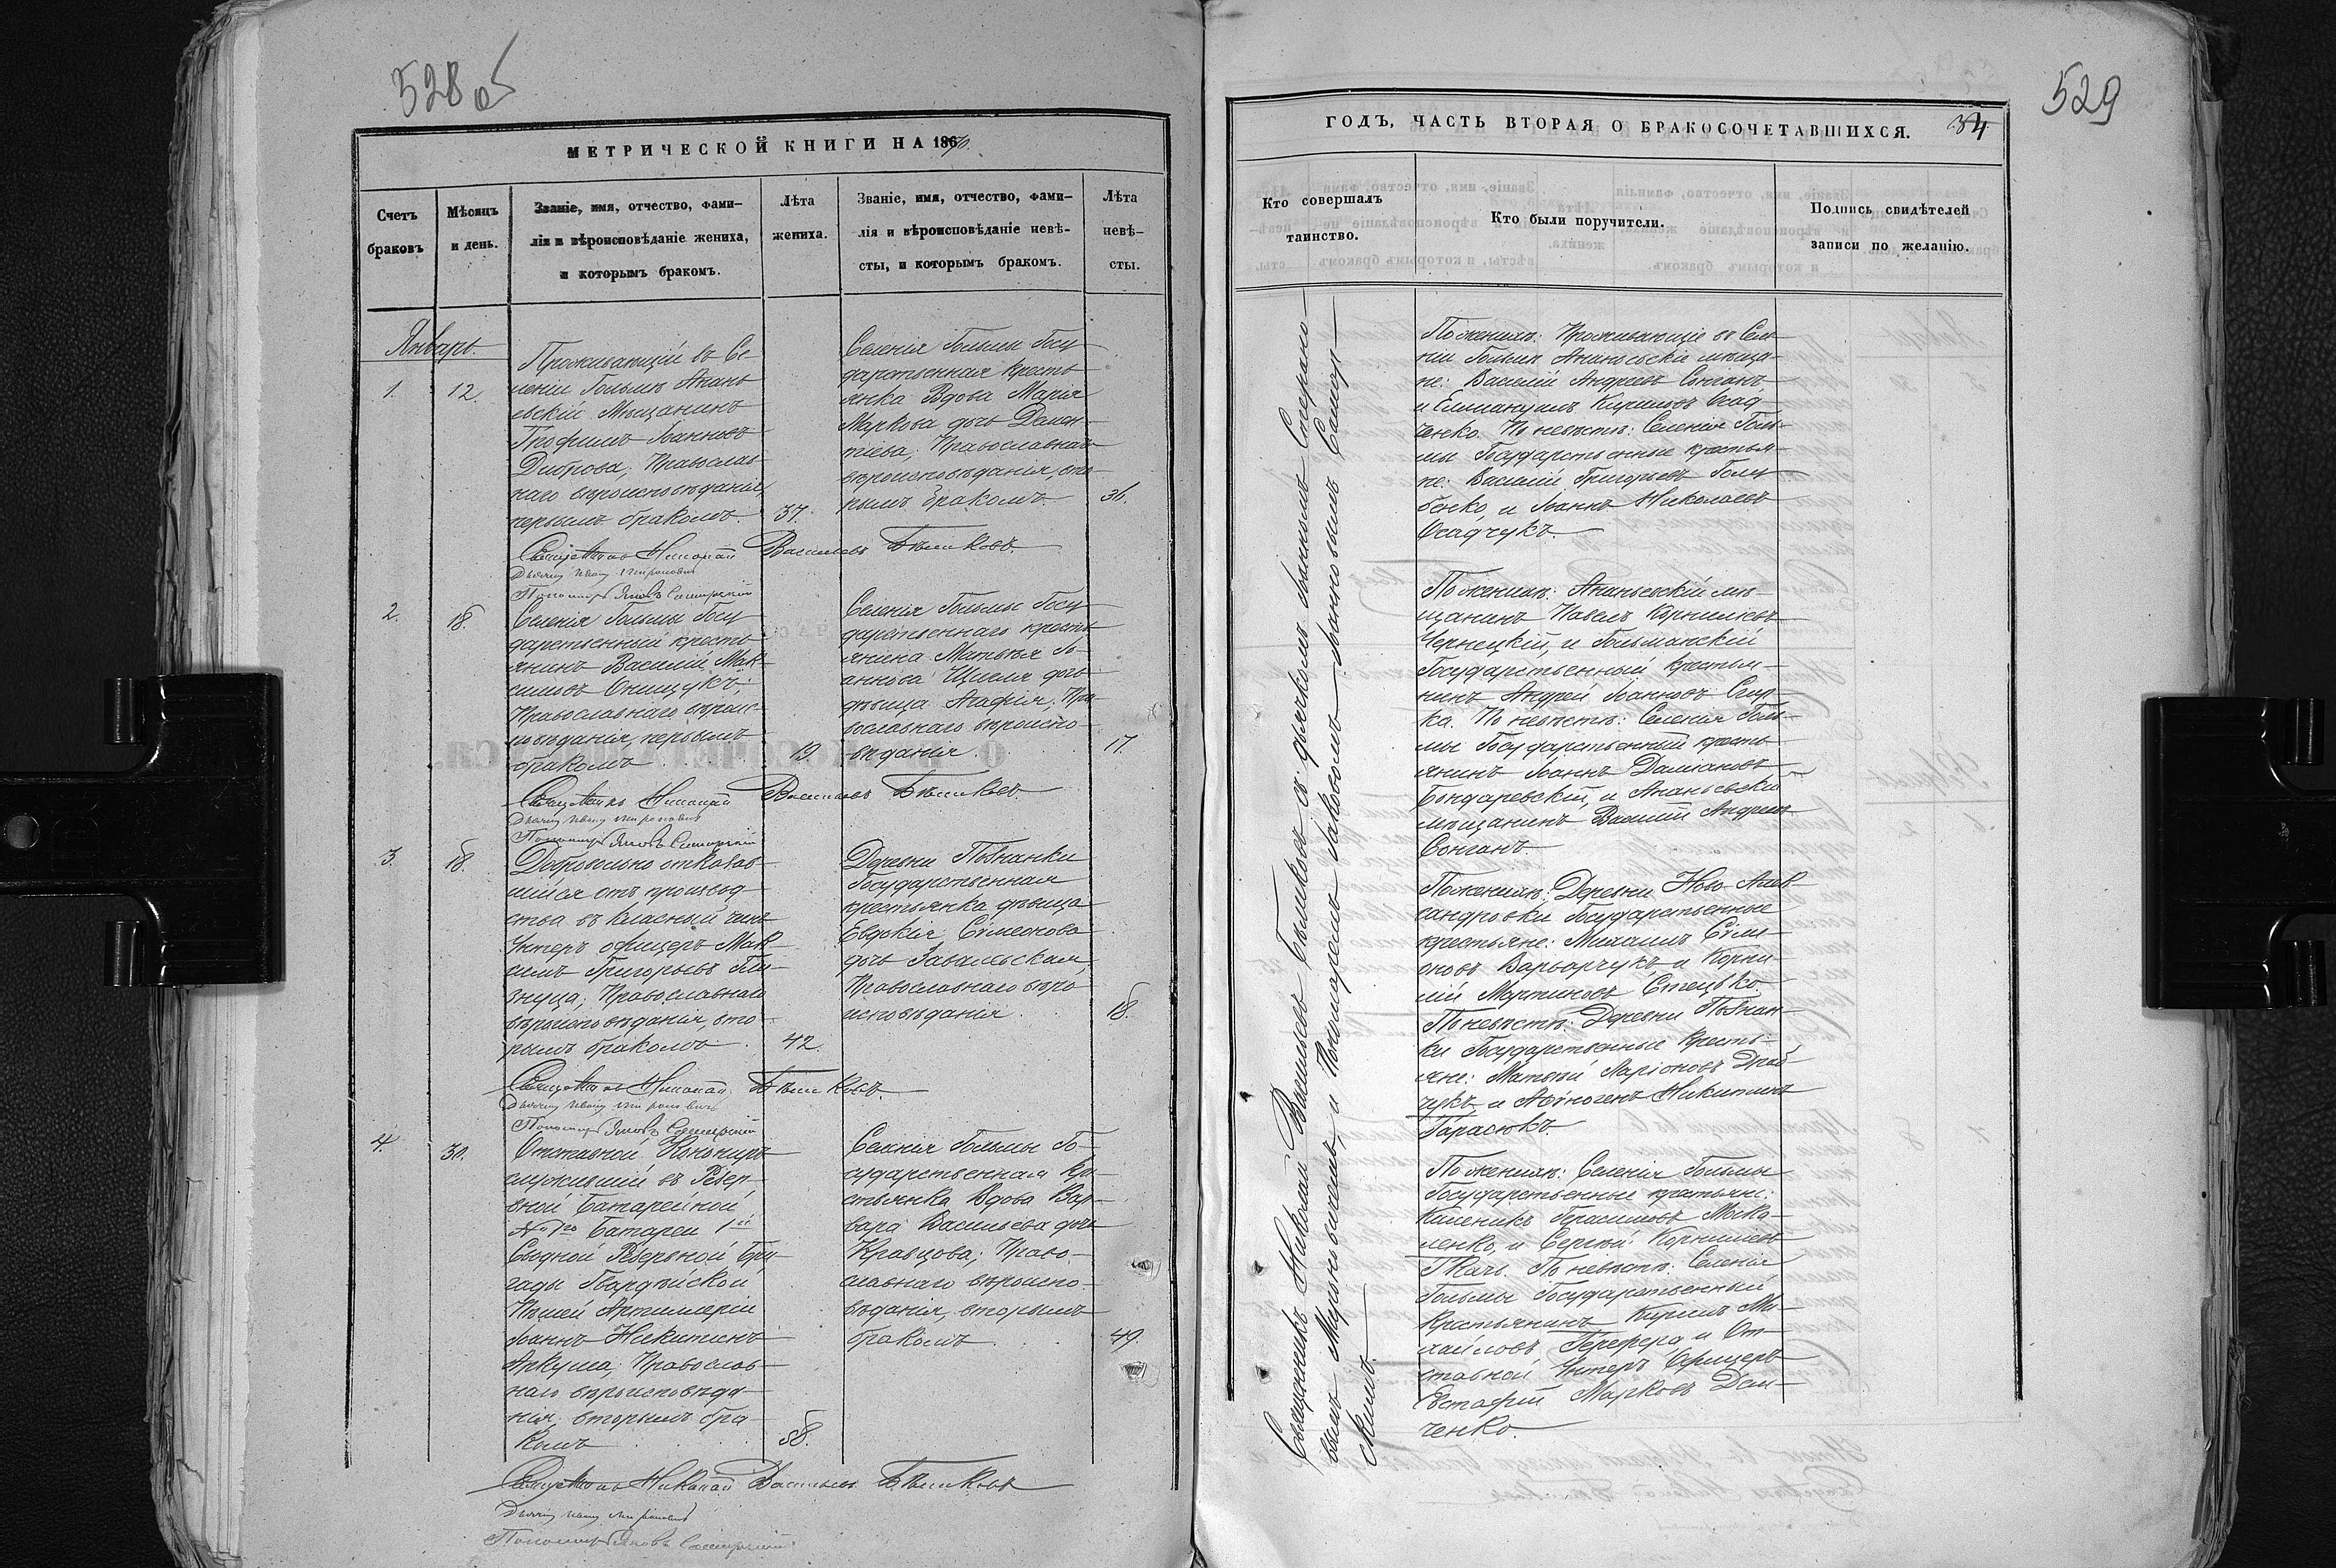 528 об
МЕТРИЧЕСКОЙ КНИГИ НА 1870.
Счетъ
браковъ
Мѣсяцъ
и день.
Званіе, имя, отчество, фами-
лія и вѣроисповѣданіе жениха,
и которымъ бракомъ.
Лѣта
жениха.
Званіе, имя, отчество, фами-
лія и вѣроисповѣданіе невѣ-
сты, и которымъ бракомъ.
Лѣта
невѣ-
сты.
Январь.
1.
12.
Проживающій въ Се-
леніи Гольмѣ Анань
евскій Мѣщанинъ
Трофимъ Іоанновъ
Диброва, Православ-
наго вѣроисповѣданія,
первымъ бракомъ.
37.
Селенія Гольмы Госу
дарственная кресть
янка Вдова Марія
Маркова дочь
Православнаго
вѣроисповѣданія, вто
рымъ бракомъ.
36.
Священникъ Николай Васильевъ Бѣликовъ.
Пономарь Яковъ
2.
18.
Селенія Гольмы Госу
дарственный кресть
янинъ Василій Мак-
симовъ Онищукъ,
Православнаго вѣроис-
повѣданія, первымъ
бракомъ
19.
Селенія Гольмы Госу
дарственнаго кресть
янина Матѳея Іо-
аннова дочь
дѣвица Агафія, Пра
вославнаго вѣроиспо-
вѣданія.
17.
Священникъ Николай Васильевъ Бѣликовъ.
Пономарь Яковъ
3.
18.
Добровольно отказав
шійся отъ производ-
ства въ класный чинъ
Унтеръ офицеръ Мак-
симъ Григорьевъ
Православнаго
вѣроисповѣданія, вто-
рымъ бракомъ
42.
Деревни Поѣнанки
Государственная
крестьянка дѣвица
Евдокія Сѵмеонова
дочь Завальская,
Православнаго вѣро
исповѣданія
18.
Священникъ Николай Бѣликовъ.
Пономарь Яковъ
4.
30.
Отставной Канониръ
служившій въ Резер-
вной Батарейной
№ 1го Батареи 1й
Сводной Резервной Бри
гады Гвардѣйской
Пѣшей Артиллеріи
Іоаннъ Никитинъ
Аркуша, Православ-
наго вѣроисповѣда-
нія, вторымъ бра-
комъ
58.
Селенія Гольмы Го-
сударственная кре-
стьянка Вдова Вар-
вара Васильева дочь
Кравцова, Право-
славнаго вѣроиспо-
вѣданія, вторымъ
бракомъ
49.
Священникъ Николай Васильевъ Бѣликовъ
Пономарь Яковъ
529
ГОДЪ, ЧАСТЬ ВТОРАЯ О БРАКОСОЧЕТАВШИХСЯ.
34
Кто совершалъ
таинство.
Кто были поручители.
Подпись свидѣтелей
записи по желанію.
Священникъ Николай Васильевъ Бѣликовъ съ дьячкомъ Іоанномъ
и Пономаремъ Іаковомъ Іоанновымъ
По женихѣ: Проживающіе въ Селе-
ніи Гольмѣ Ананьевскіе мѣща-
не: Василій Андреевъ Сонганъ
и Еммануилъ Кириловъ Осад-
ченко. По невѣстѣ: Селенія Голь-
мы Государственные крестья-
не: Василій Григорьевъ Голу-
бенко, и Іоаннъ Николаевъ
Осадчукъ.
По женихѣ: Ананьевскій мѣ-
щанинъ Павелъ Корниліевъ
Чернецкій, и Гольманскій
Государственный крестья-
нинъ Андрей Іоанновъ
По невѣстѣ: Селенія Голь-
мы Государственный кресть-
янинъ Іоаннъ Даміановъ
Бондаревскій, и Ананьевскій
мѣщанинъ Василій Андреевъ
Сонганъ.
По женихѣ: Деревни Ново Алек-
сандровки Государственные
крестьяне: Михаилъ Сѵме-
оновъ Варварчукъ, и Корни-
лій Мартиновъ Стецько.
По невѣстѣ: Деревни Поѣнан-
ки Государственные кресть-
яне: Матѳей Ларіоновъ Драб-
чукъ, и Аѳиногенъ Никитинъ
Тарасюкъ.
По женихѣ: Селенія Гольмы
Государственные крестьяне:
Каленикъ Герасимовъ Моска-
ленко, и Сергѣй Корниліевъ
Ткачъ. По невѣстѣ: Селенія
Гольмы Государственный
Крестьянинъ Кирилъ Ми-
хайловъ Герефера и От-
ставной Унтеръ Офицеръ
Евстафій Марковъ Дем-
ченко.